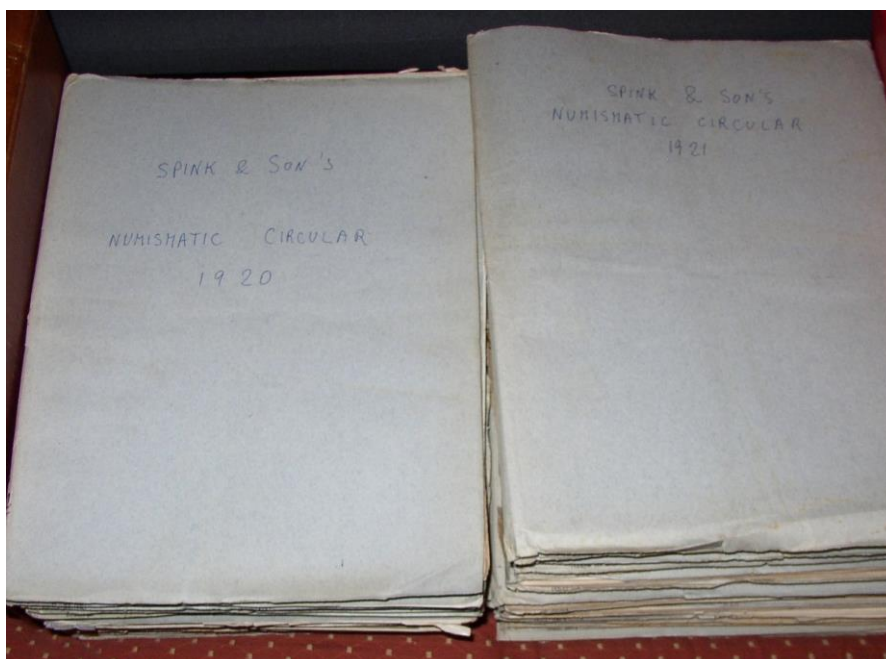 SPINK & SON'S
NUMISMATIC CIRCULAR
1920
SPINK & SON'S
NUMISMATIC CIRCULAR
1921